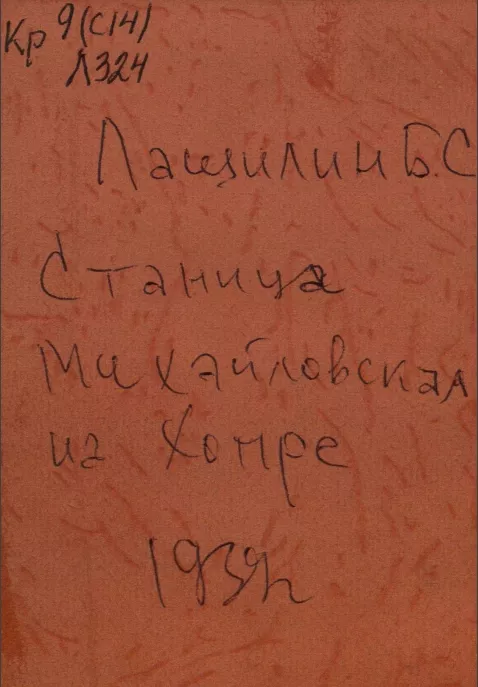 Кр 9(С14)
Л324
Лащилин Б.С
Станица
Михайловская
на Хопре
1939г